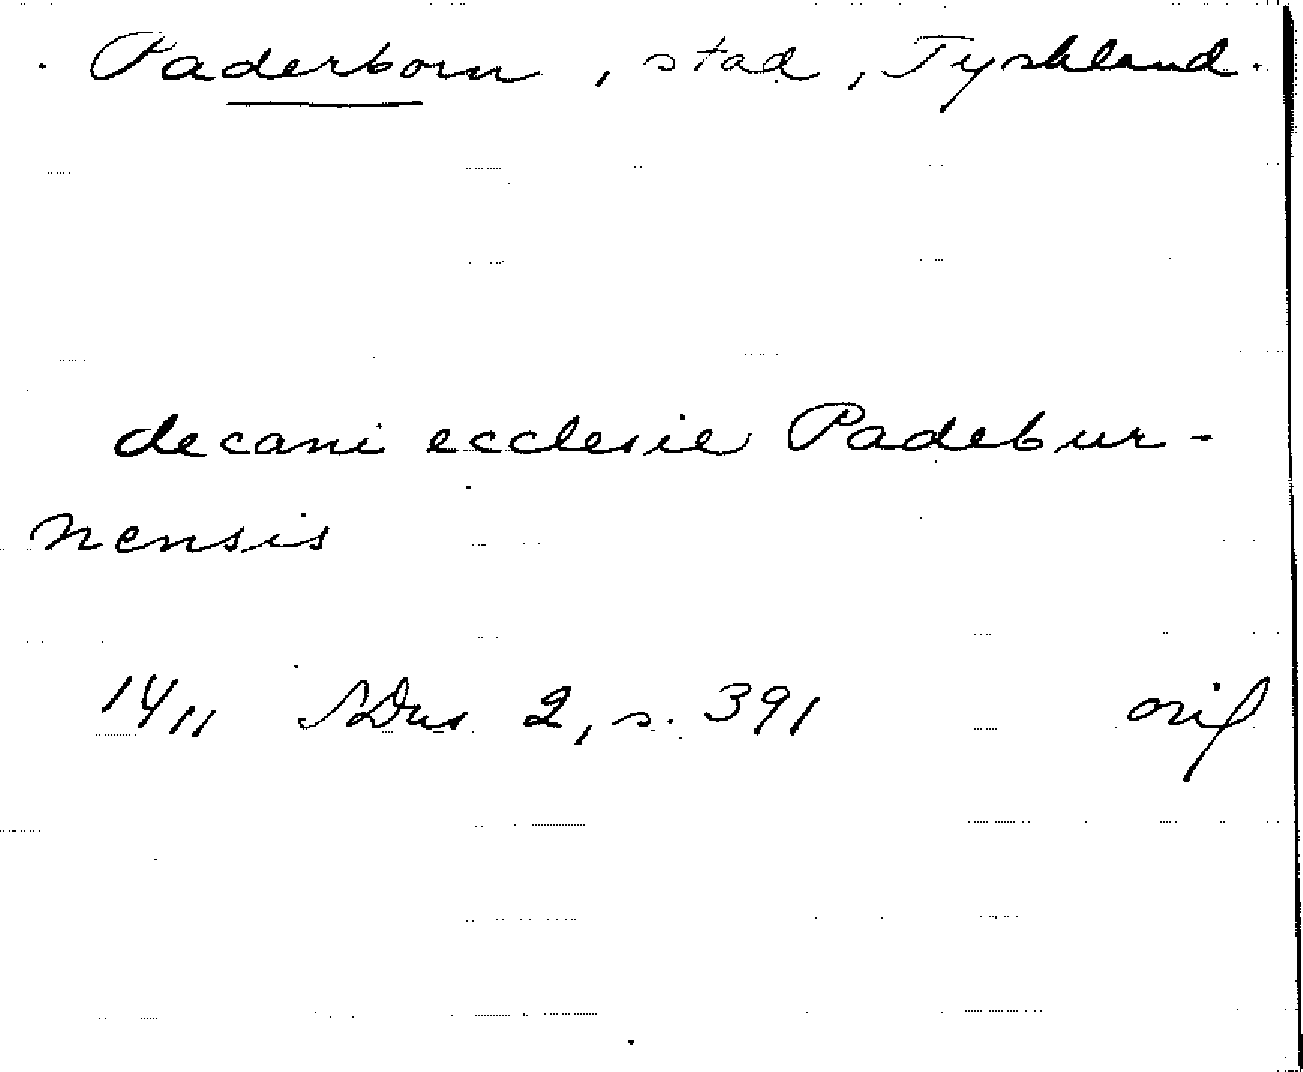 Paderborn, stad, Tyskland.
decani ecclesie Padebur-
nensis
14/11 SDns 2, s. 391 orig